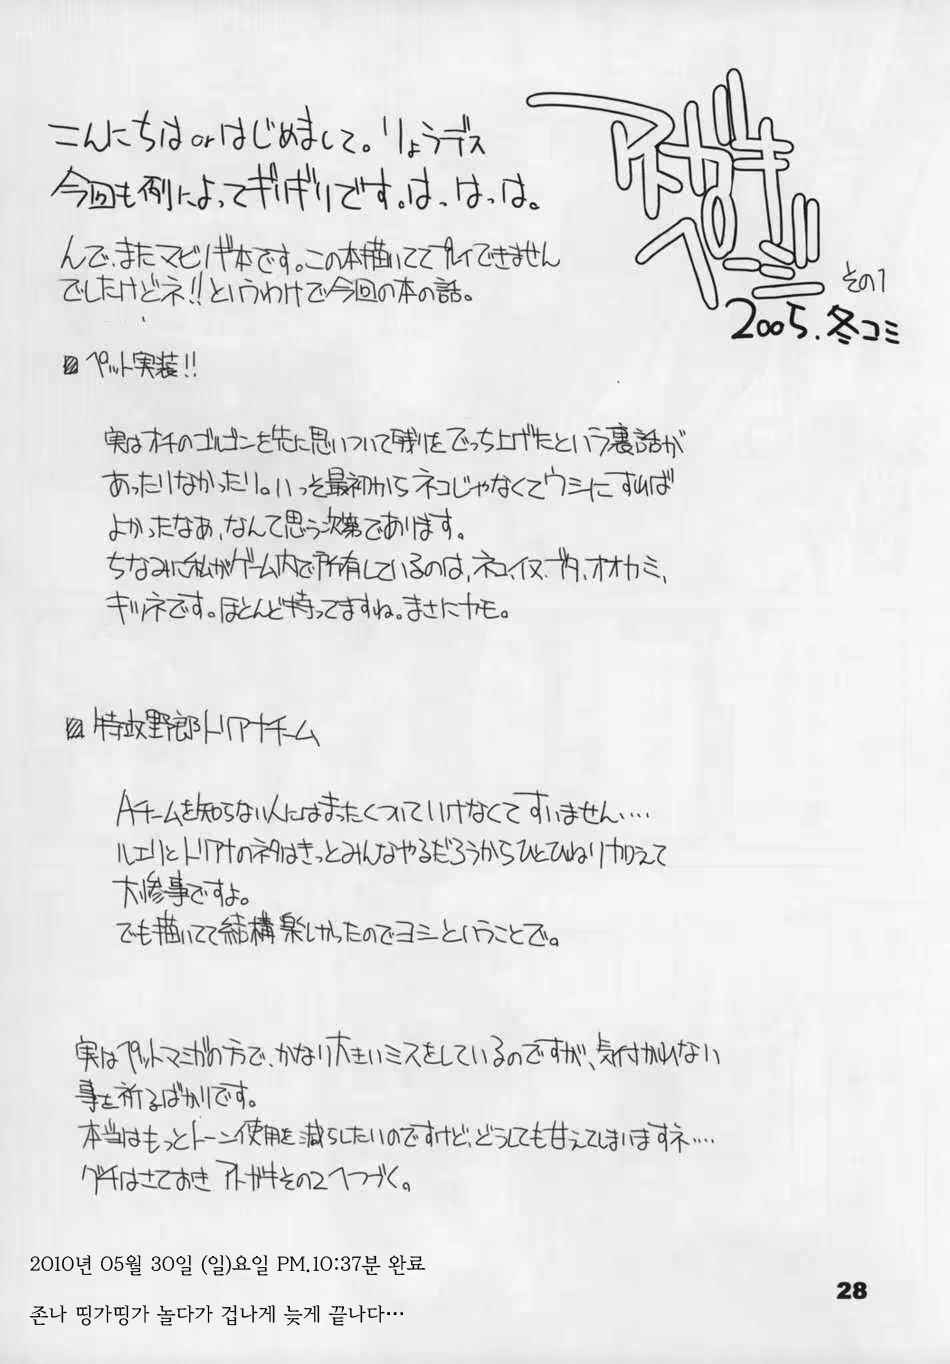 アトガキ
なの
ページ
その1
2005.冬コミ
こんにちは or はじめまして。りょうデス
今回も例によってギリギリです。は、はっは。
んで、またマビノギ本です。この本描いててプレイできません
でしたけどネ!!というわけで今回の本の話。
ペット実装!!
実はオチのゴルゴンを先に思いついて残りをでっち上げたという裏話が
あったりなかったり。いっそ最初からネコじゃなくてウシにすれば
よかったなあ、なんて思う次第であります。
ちなみに私がゲーム内で所有しているのは、ネコ、イヌ、ブタ、オオカミ、
キツネです。ほとんど持ってますね。まさにカモ。
特攻野郎トリアナチーム
Aチームを知らない人にはまったくついていけなくてすいません‥‥
ルエリとトリアナのネタはきっとみんなやるだろうからひとひねり加えて
大惨事ですよ。
でも描いてて結構楽しかったのでヨシということで。
実はペットマンガの方で、かなり大きいミスをしているのですが、気付かれない
事を祈るばかりです。
本当はもっとトーン使用を減らしたいのですけど、どうしても甘えてしまいますネ‥‥
グチはさておき アトガキその2へつづく。
2010년 05월 30일 (일)요일 PM.10:37분 완료
존나 띵가띵가 놀다가 겁나게 늦게 끝나다…
28